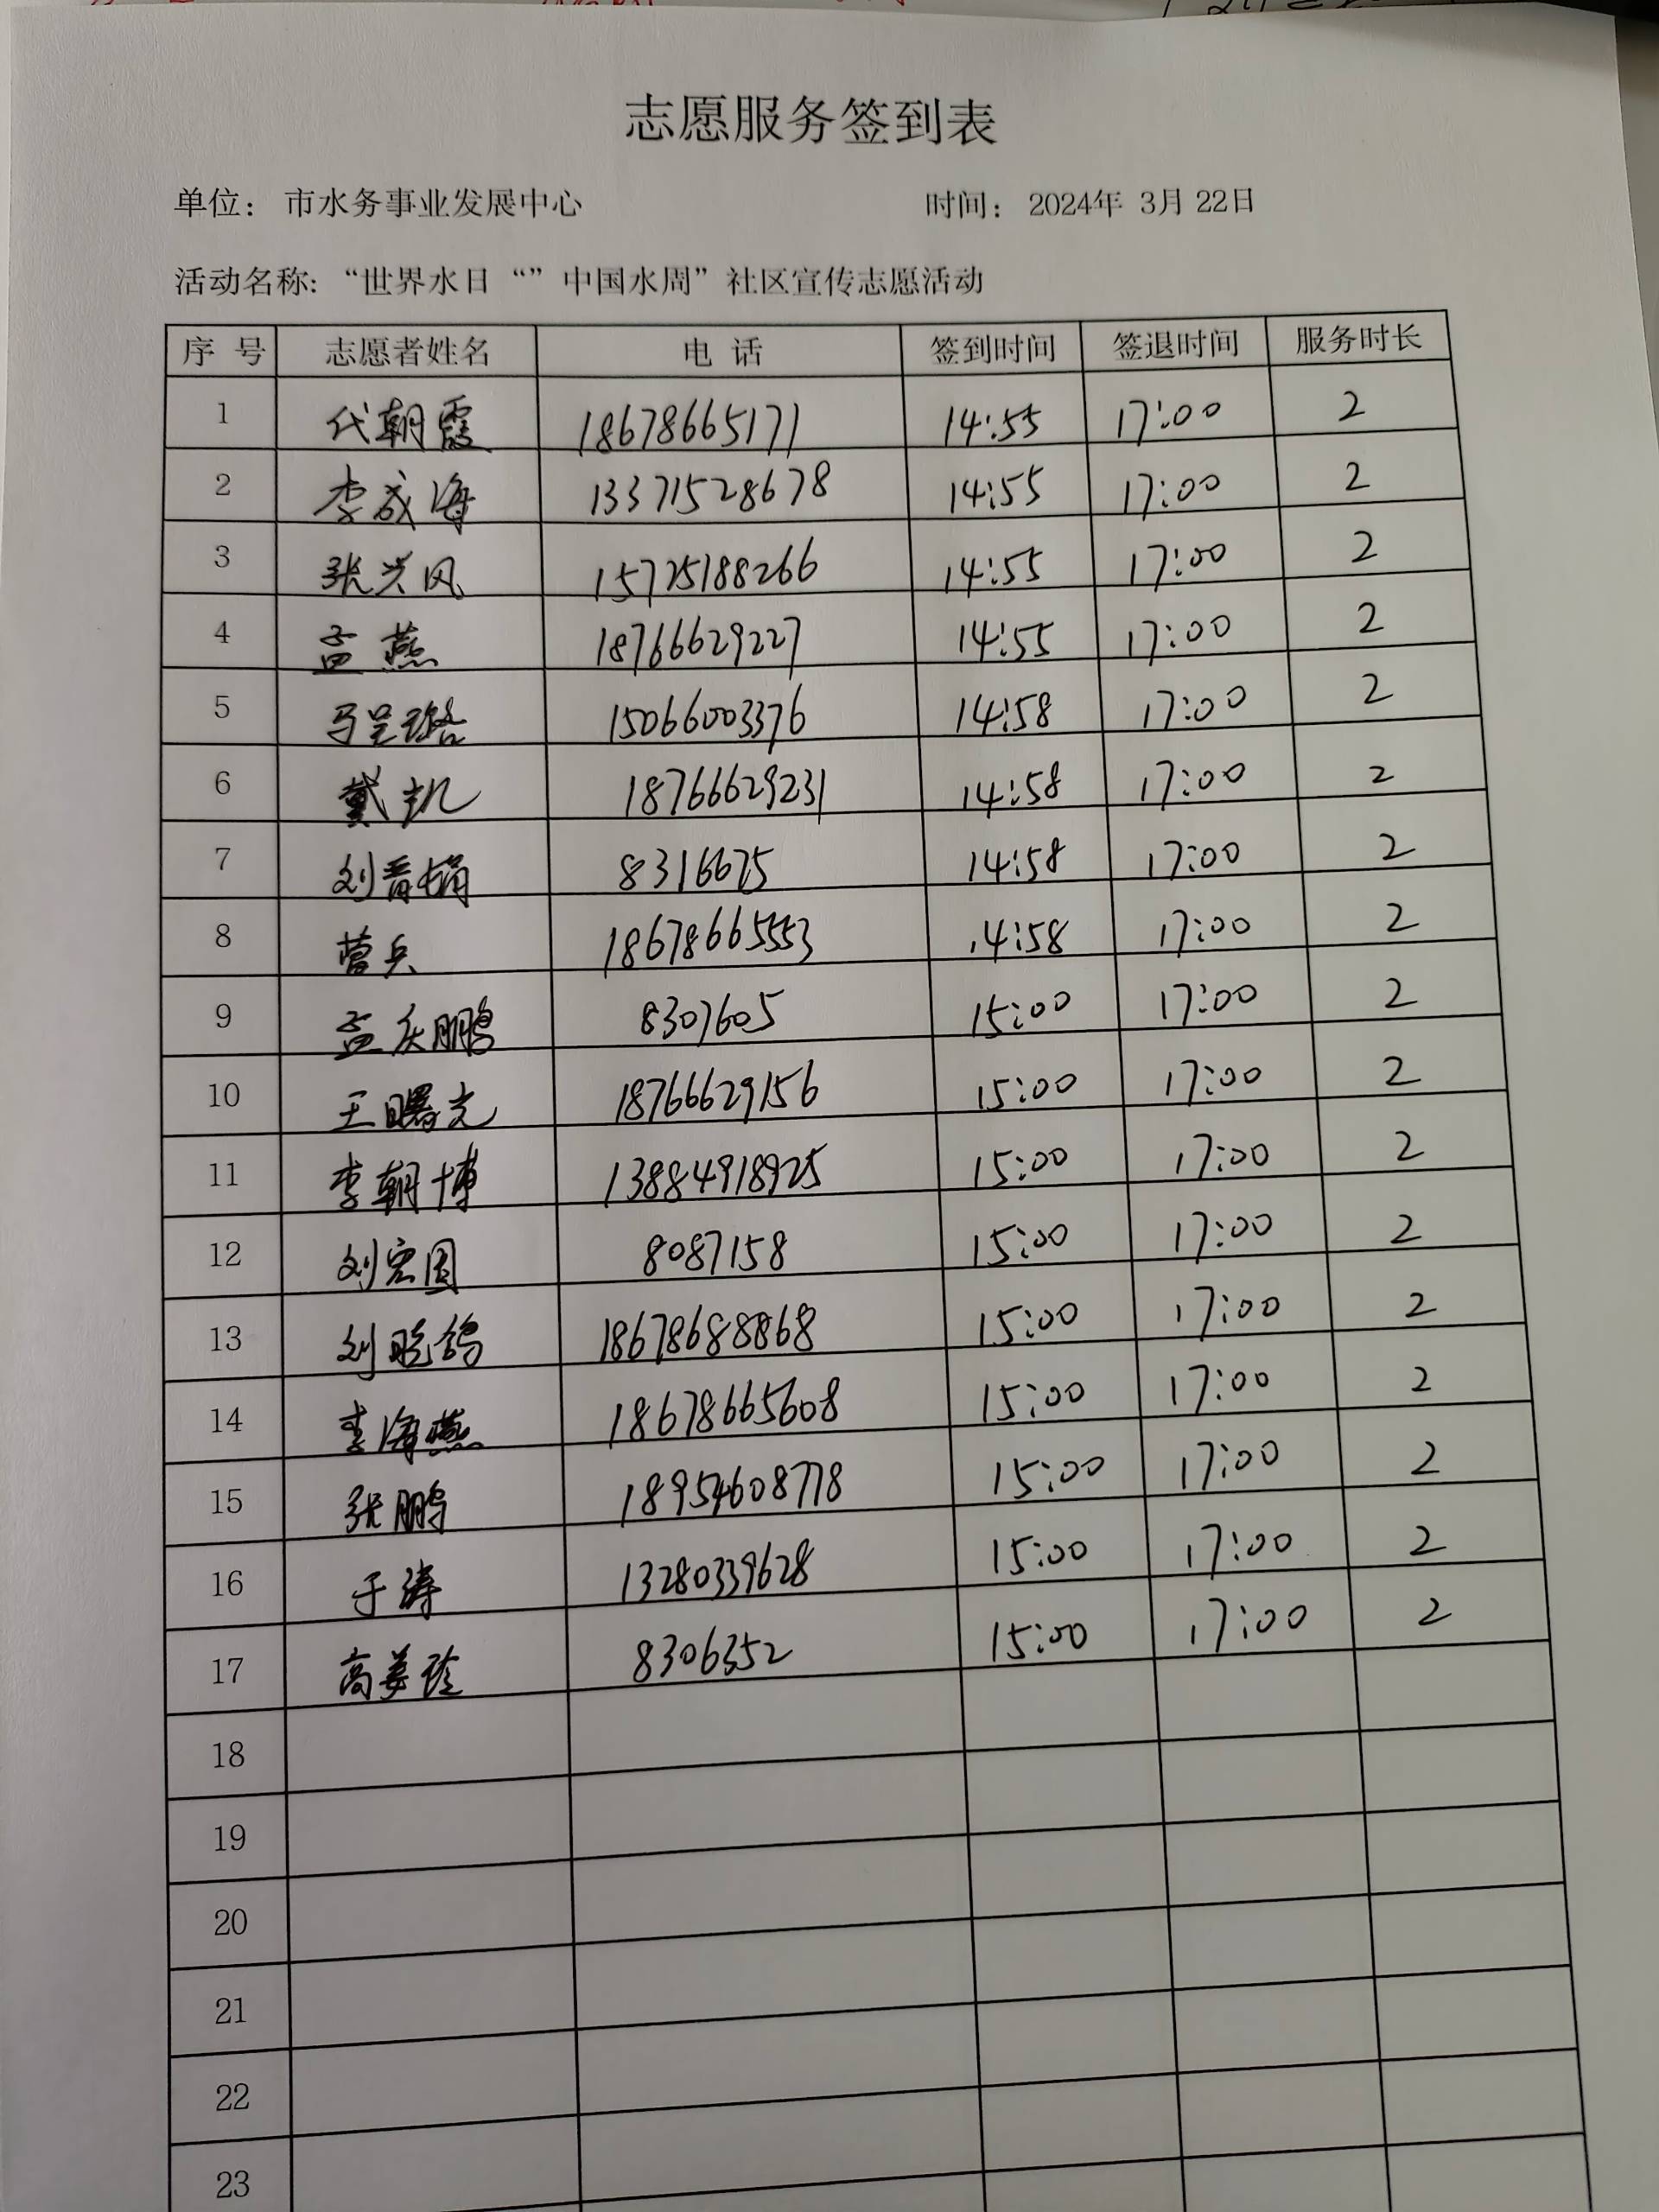 志愿服务签到表
单位： 市水务事业发展中心 时间： 2024年 3月 22日
活动名称: “世界水日“”中国水周”社区宣传志愿活动
序 号 志愿者姓名 电 话 签到时间 签退时间 服务时长
1 代朝霞 18678665171 14:55 17:00 2
2 李成海 13371528678 14:55 17:00 2
3 张兴风 15725188266 14:55 17:00 2
4 孟燕 18766629227 14:55 17:00 2
5 马呈璐 15066003376 14:58 17:00 2
6 戴凯 18766629231 14:58 17:00 2
7 刘青娟 8316675 14:58 17:00 2
8 营兵 18678665553 14:58 17:00 2
9 孟庆鹏 8307605 15:00 17:00 2
10 王曙光 18766629156 15:00 17:00 2
11 李朝博 13884918925 15:00 17:00 2
12 刘宏国 8087158 15:00 17:00 2
13 刘晓鸽 18678688868 15:00 17:00 2
14 李海燕 18678665608 15:00 17:00 2
15 张鹏 18954608778 15:00 17:00 2
16 于涛 13280339628 15:00 17:00 2
17 高美玲 8306352 15:00 17:00 2
18
19
20
21
22
23